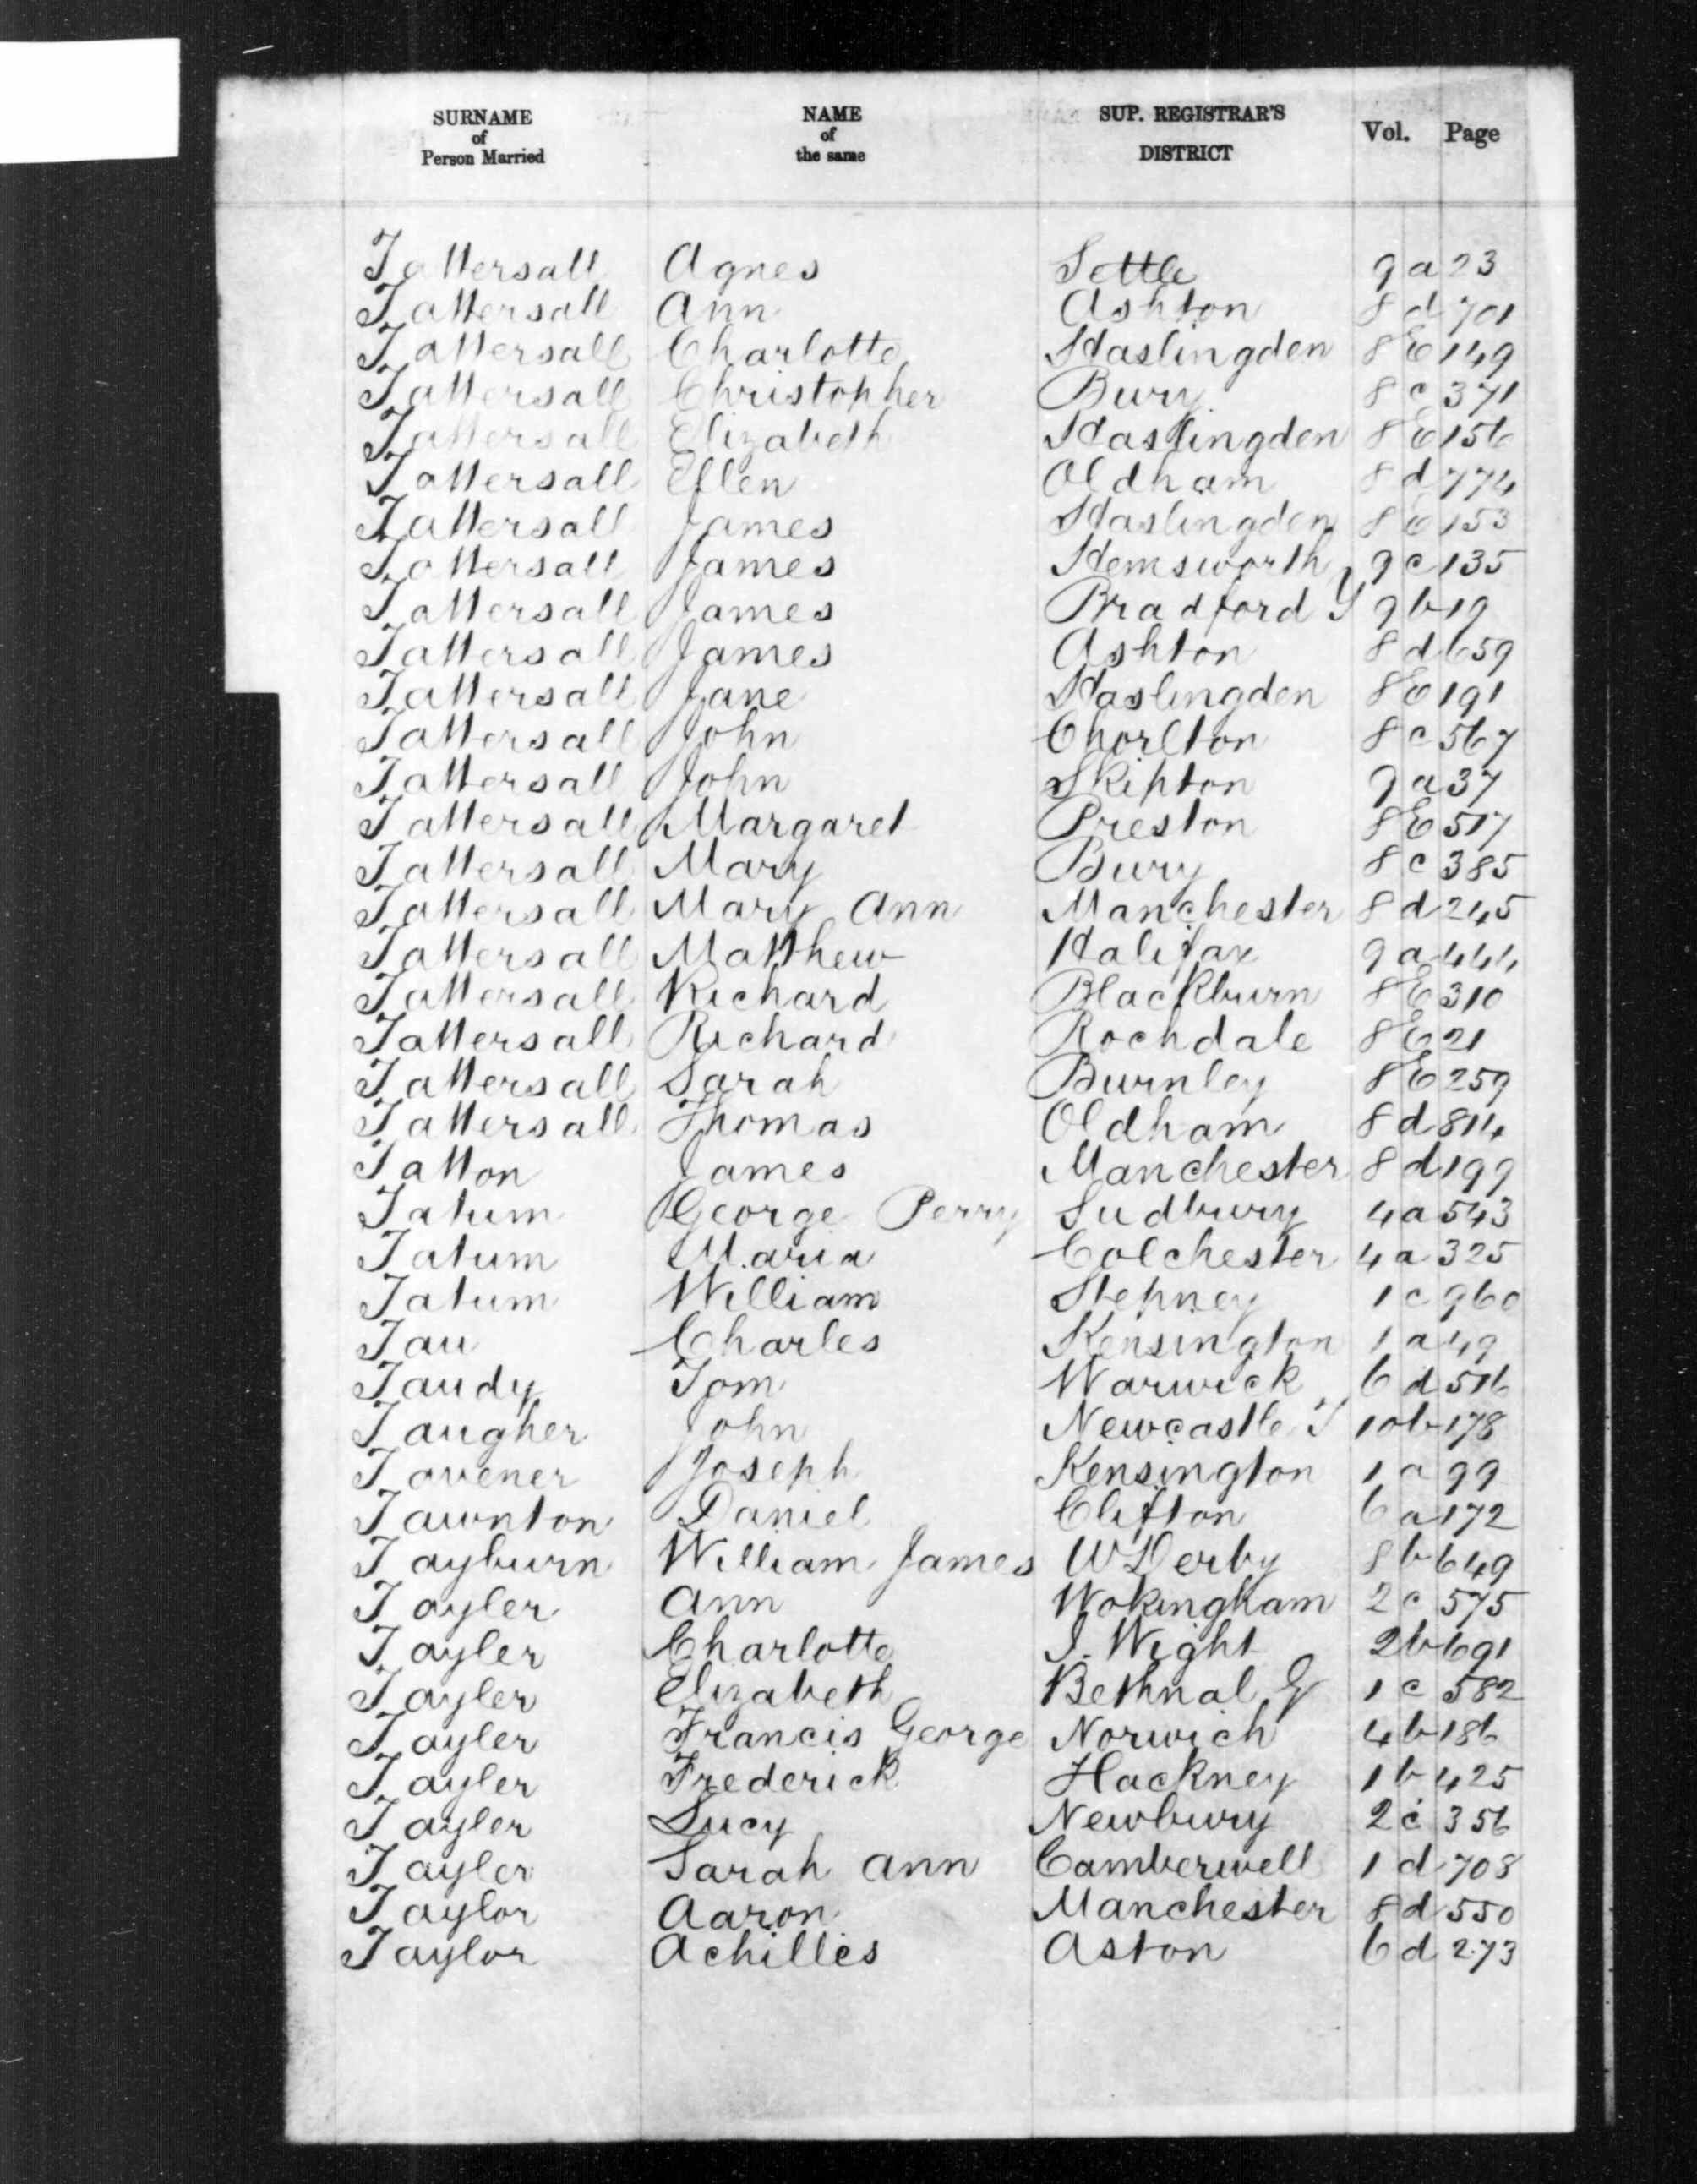 SURNAME of Person Married NAME of the same SUP. REGISTRAR'S DISTRICT Vol. Page
Tattersall Agnes Settle 9 a 23
Tattersall Ann Ashton 8 d 701
Tattersall Charlotte Haslingden 8 E 149
Tattersall Christopher Bury 8 c 371
Tattersall Elizabeth Haslingden 8 E 156
Tattersall Ellen Oldham 8 d 774
Tattersall James Haslingden 8 E 153
Tattersall James Hemsworth 9 c 135
Tattersall James Bradford Y 9 b 19
Tattersall James Ashton 8 d 659
Tattersall Jane Haslingden 8 E 191
Tattersall John Chorlton 8 c 567
Tattersall John Skipton 9 a 37
Tattersall Margaret Preston 8 E 517
Tattersall Mary Bury 8 c 385
Tattersall Mary Ann Manchester 8 d 245
Tattersall Matthew Halifax 9 a 444
Tattersall Richard Blackburn 8 E 310
Tattersall Richard Rochdale 8 E 21
Tattersall Sarah Burnley 8 E 259
Tattersall Thomas Oldham 8 d 814
Tatton James Manchester 8 d 199
Tatum George Perry Sudbury 4 a 543
Tatum Maria Colchester 4 a 325
Tatum William Stepney 1 c 960
Tau Charles Kensington 1 a 49
Taudy Tom Warwick 6 d 516
Taugher John Newcastle T 10 b 178
Tavener Joseph Kensington 1 a 99
Tawnton Daniel Clifton 6 a 172
Tayburn William James W Derby 8 b 649
Tayler Ann Wokingham 2 c 575
Tayler Charlotte I. Wight 2 b 691
Tayler Elizabeth Bethnal G 1 c 582
Tayler Francis George Norwich 4 b 186
Tayler Frederick Hackney 1 b 425
Tayler Lucy Newbury 2 c 356
Tayler Sarah Ann Camberwell 1 d 708
Taylor Aaron Manchester 8 d 550
Taylor Achilles Aston 6 d 273